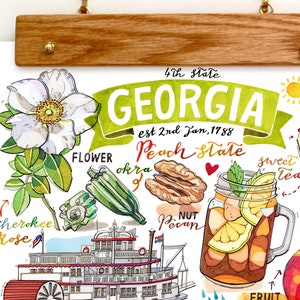 4th State
GEORGIA
est 2nd Jan, 1788
Peach State
FLOWER
okra
sweet
tea
Cherokee
Rose
NUT
Pecan
FRUIT